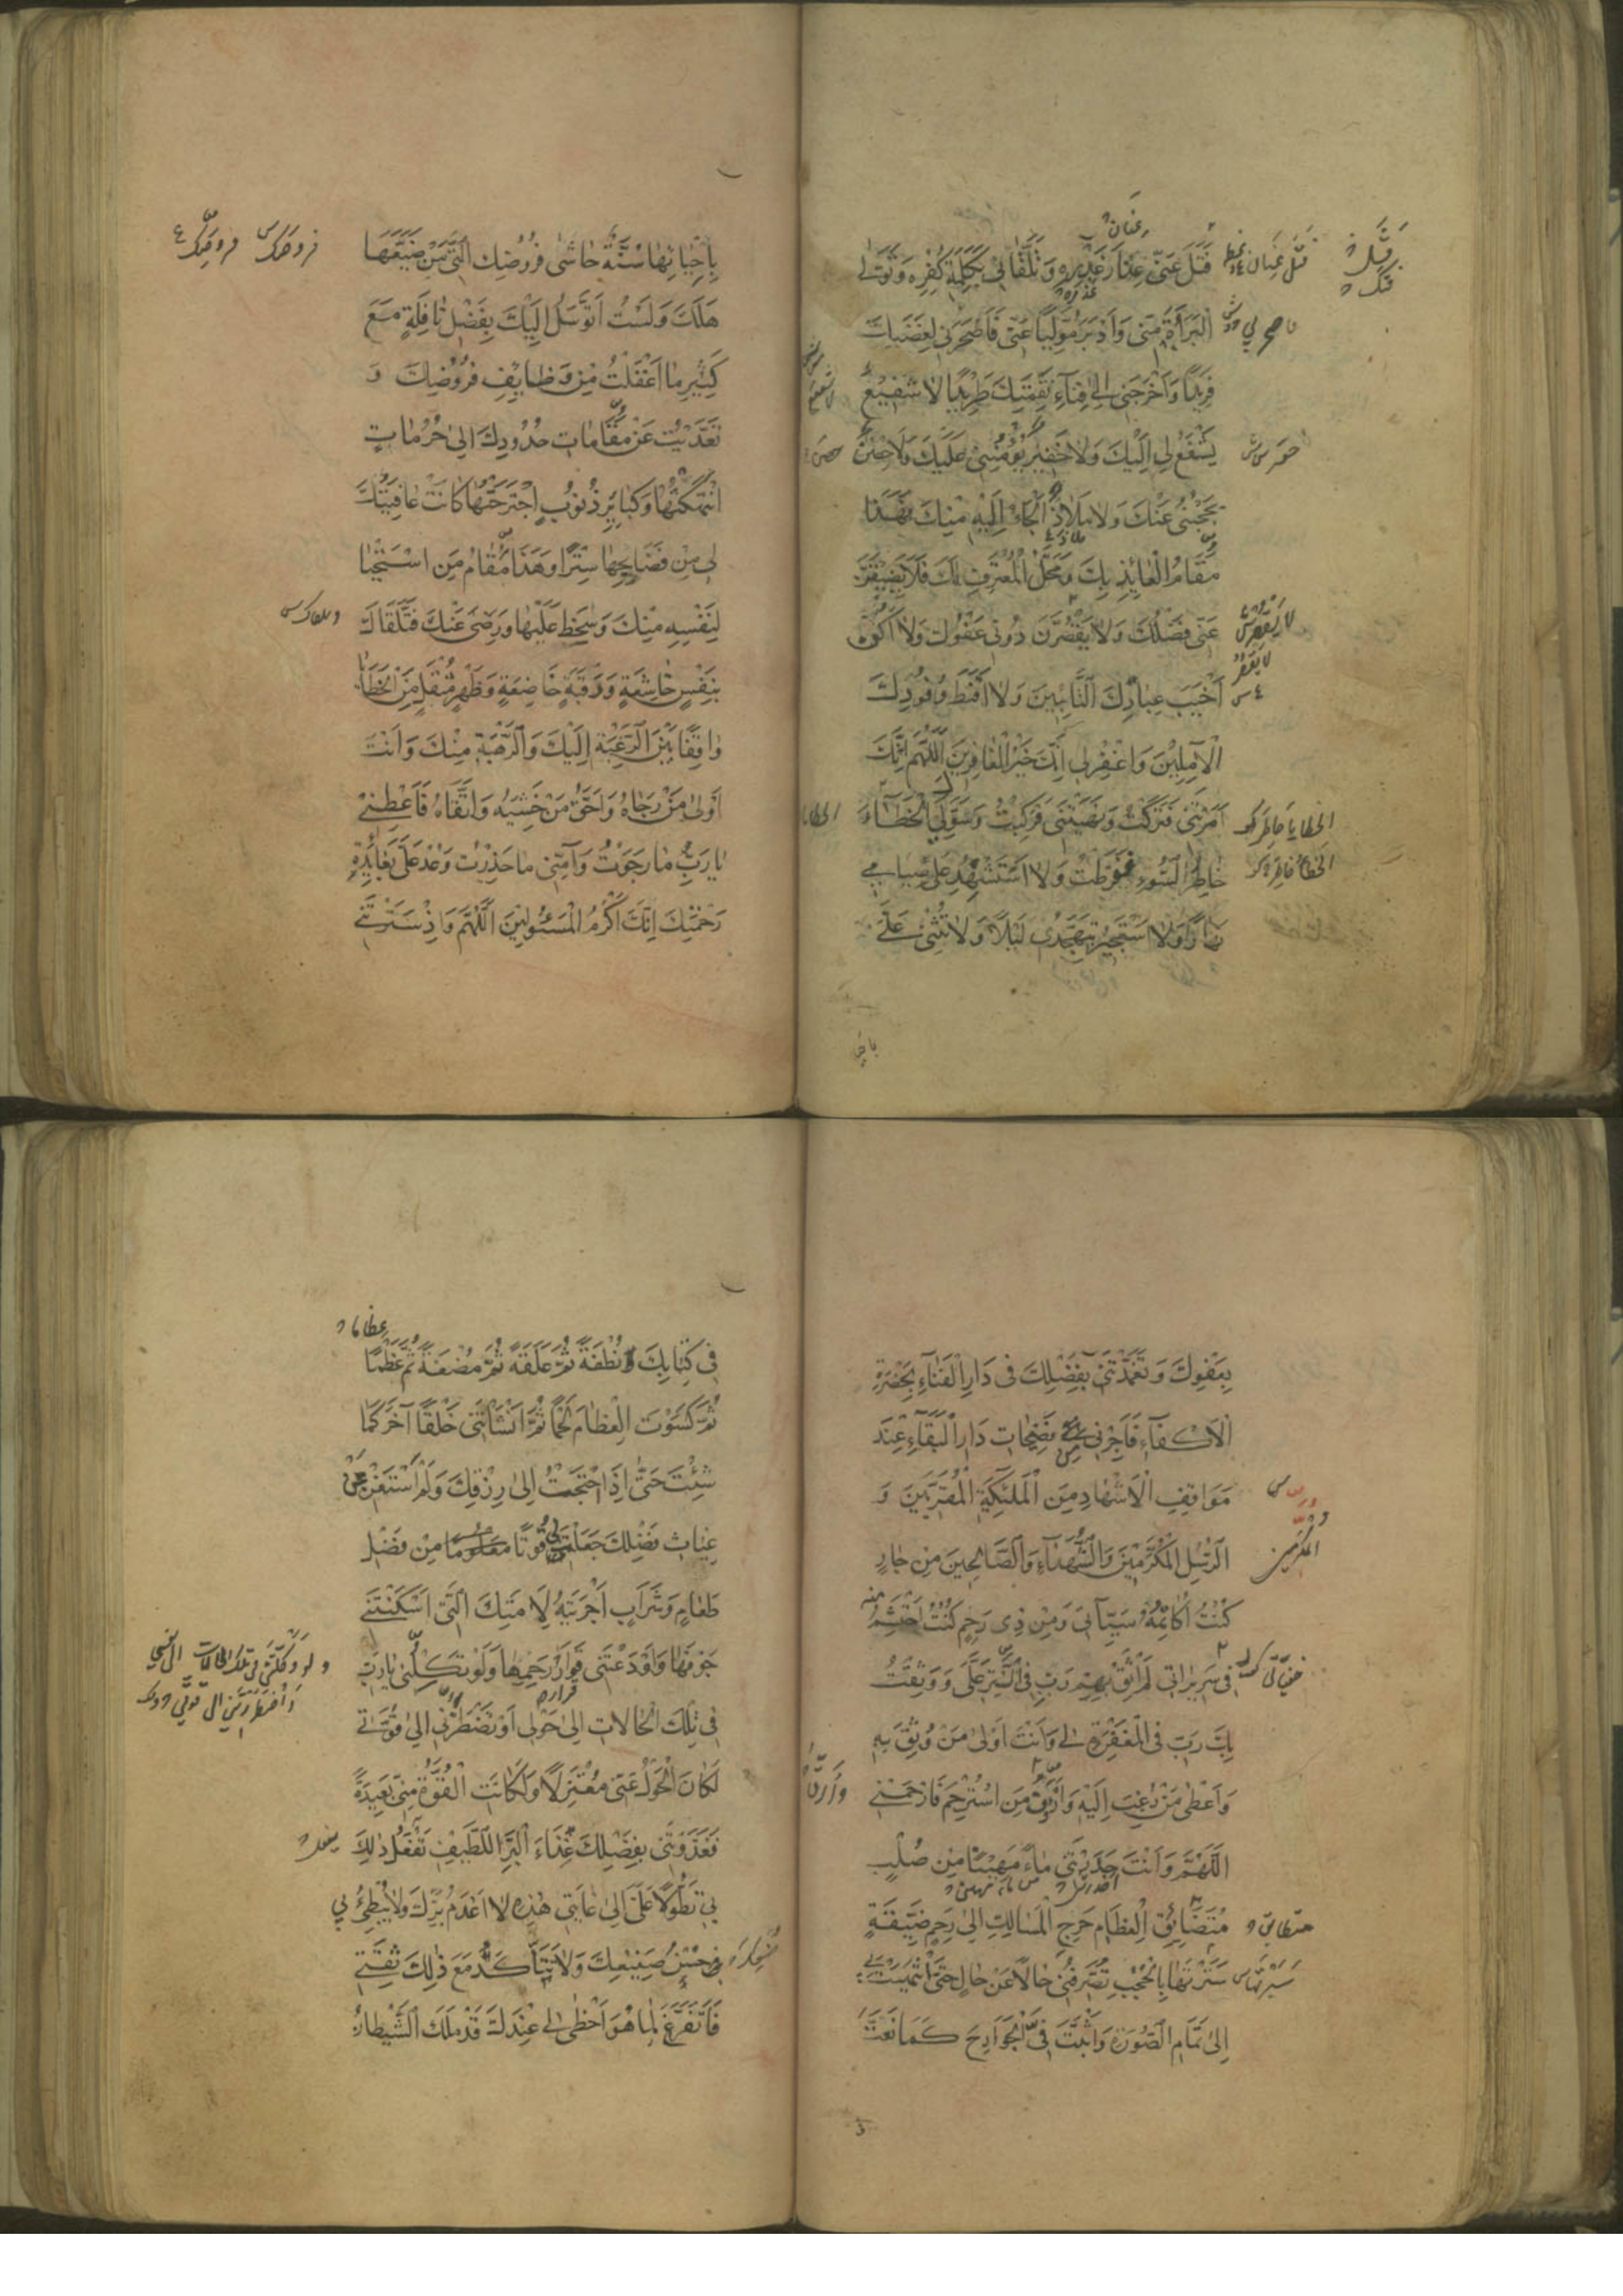 فَتَلَ عَنّي عِذَارَ غَدْرِهِ وَتَلَقَّانِي بِكَلِمَةِ كُفْرِهِ وَتَوَلَّى
الْبَرَآءَةَ مِنّي وَاَدْبَرَ مُوَلِّيًا عَنّي فَاَصْحَرَني لِغَضَبِكَ
فَرِيدًا وَاَخْرَجَني اِلى فِنَآءِ نَقِمَتِكَ طَرِيدًا لا شَفِيعٌ
يَشْفَعُ لي اِلَيْكَ وَلا خَفِيرٌ يُؤْمِنُني عَلَيْكَ وَلا حِصْنٌ
يَحْجُبُني عَنْكَ وَلا مَلاذٌ اَلْجَاُ اِلَيْهِ مِنْكَ فَهَذَا
مَقَامُ الْعَائِذِ بِكَ وَمَحَلُّ الْمُعْتَرِفِ لَكَ فَلا يَضِيقَنَّ
عَنّي فَضْلُكَ وَلا يَقْصُرَنَّ دُوني عَفْوُكَ وَلا اَكُونُ
اَخْيَبَ عِبَادِكَ التَّائِبِينَ وَلا اَقْنَطَ وُفُودِكَ
الْآمِلِينَ وَاغْفِرْ لي اِنَّكَ خَيْرُ الْغَافِرِينَ اَللّهُمَّ اِنَّكَ
اَمَرْتَني فَتَرَكْتُ وَنَهَيْتَني فَرَكِبْتُ وَسَوَّلَ لِيَ الْخَطَآءَ
خَاطِرُ السُّوءِ فَفَرَّطْتُ وَلا اَسْتَشْهِدُ عَلى صِيَامي
نَهَارًا وَلا اَسْتَجِيرُ بِتَهَجُّدي لَيْلًا وَلا تُثْني عَلَيَّ
بِاِحْيَائِهَا سُنَّةٌ حَاشى فُرُوضِكَ الَّتي مَنْ ضَيَّعَهَا
هَلَكَ وَلَسْتُ اَتَوَسَّلُ اِلَيْكَ بِفَضْلِ نَافِلَةٍ مَعَ
كَثِيرِ مَا اَغْفَلْتُ مِنْ وَظَايِفِ فُرُوضِكَ وَ
تَعَدَّيْتُ عَنْ مَقَامَاتِ حُدُودِكَ اِلى حُرُمَاتٍ
انْتَهَكْتُهَا وَكَبَايِرِ ذُنُوبٍ اجْتَرَحْتُهَا كَانَتْ عَافِيَتُكَ
لي مِنْ فَضَايِحِهَا سِتْرًا وَهَذَا مَقَامُ مَنِ اسْتَحْيَا
لِنَفْسِهِ مِنْكَ وَسَخِطَ عَلَيْهَا وَرَضِيَ عَنْكَ فَتَلَقَّاكَ
بِنَفْسٍ خَاشِعَةٍ وَرَقَبَةٍ خَاضِعَةٍ وَظَهْرٍ مُثْقَلٍ مِنَ الْخَطَايَا
وَاقِفًا بَيْنَ الرَّغْبَةِ اِلَيْكَ وَالرَّهْبَةِ مِنْكَ وَاَنْتَ
اَوْلى مَنْ رَجَاهُ وَاَحَقُّ مَنْ خَشِيَهُ وَاتَّقَاهُ فَاَعْطِني
يَا رَبِّ مَا رَجَوْتُ وَآمِنّي مَا حَذِرْتُ وَعُدْ عَلَيَّ بِعَائِدَةِ
رَحْمَتِكَ اِنَّكَ اَكْرَمُ الْمَسْئُولِينَ اَللّهُمَّ وَاِذْ سَتَرْتَني
بِعَفْوِكَ وَتَغَمَّدْتَني بِفَضْلِكَ في دَارِ الْفَنَاءِ بِحَضْرَةِ
الْاَكْفَآءِ فَاَجِرْني مِنْ فَضِيحَاتِ دَارِ الْبَقَآءِ عِنْدَ
مَوَاقِفِ الْاَشْهَادِ مِنَ الْمَلئِكَةِ الْمُقَرَّبِينَ وَ
الرُّسُلِ الْمُكَرَّمِينَ وَالشُّهَدَآءِ وَالصَّالِحِينَ مِنْ جَارٍ
كُنْتُ اُكَاتِمُهُ سَيِّآتي وَمِنْ ذي رَحِمٍ كُنْتُ اَحْتَشِمُ
في سَرِيرَاتي لَمْ اَثِقْ بِهِمْ رَبِّ فِي السِّتْرِ عَلَيَّ وَوَثِقْتُ
بِكَ رَبِّ فِي الْمَغْفِرَةِ لي وَاَنْتَ اَوْلى مَنْ وُثِقَ بِهِ
وَاَعْطى مَنْ رُغِبَ اِلَيْهِ وَاَرْاَفُ مَنِ اسْتُرْحِمَ فَارْحَمْني
اَللّهُمَّ وَاَنْتَ حَدَرْتَني مَاءً مَهِينًا مِنْ صُلْبٍ
مُتَضَائِقِ الْعِظَامِ حَرِجِ الْمَسَالِكِ اِلى رَحِمٍ ضَيِّقَةٍ
سَتَرْتَهَا بِالْحُجُبِ تُصَرِّفُني حَالًا عَنْ حَالٍ حَتّى انْتَهَيْتَ بي
اِلى تَمَامِ الصُّورَةِ وَاَثْبَتَّ فِيَّ الْجَوَارِحَ كَمَا نَعَتَّ
في كِتَابِكَ نُطْفَةً ثُمَّ عَلَقَةً ثُمَّ مُضْغَةً ثُمَّ عَظْمًا
ثُمَّ كَسَوْتَ الْعِظَامَ لَحْمًا ثُمَّ اَنْشَاْتَني خَلْقًا آخَرَ كَمَا
شِئْتَ حَتّى اِذَا احْتَجْتُ اِلى رِزْقِكَ وَلَمْ اَسْتَغْنِ عَنْ
غِيَاثِ فَضْلِكَ جَعَلْتَ لي قُوتًا مَعْلُومًا مِنْ فَضْلِ
طَعَامٍ وَشَرَابٍ اَجْرَيْتَهُ لِاَمَتِكَ الَّتي اَسْكَنْتَني
جَوْفَهَا وَاَوْدَعْتَني قَرَارَ رَحِمِهَا وَلَوْ تَكِلُني يَا رَبِّ
في تِلْكَ الْحَالاتِ اِلى حَوْلي اَوْ تَضْطَرُّني اِلى قُوَّتي
لَكَانَ الْحَوْلُ عَنّي مُعْتَزِلًا وَلَكَانَتِ الْقُوَّةُ مِنّي بَعِيدَةً
فَغَذَوْتَني بِفَضْلِكَ غِذَاءَ الْبَرِّ اللَّطِيفِ تَفْعَلُ ذلِكَ
بي تَطَوُّلًا عَلَيَّ اِلى غَايَتي هذِهِ لا اَعْدَمُ بِرَّكَ وَلا يُبْطِئُ بي
حُسْنُ صَنِيعِكَ وَلا يَتَاَكَّدُ مَعَ ذلِكَ ثِقَتي
فَاَتَفَرَّغَ لِمَا هُوَ اَحْظى لي عِنْدَكَ قَدْ مَلَكَ الشَّيْطَانُ